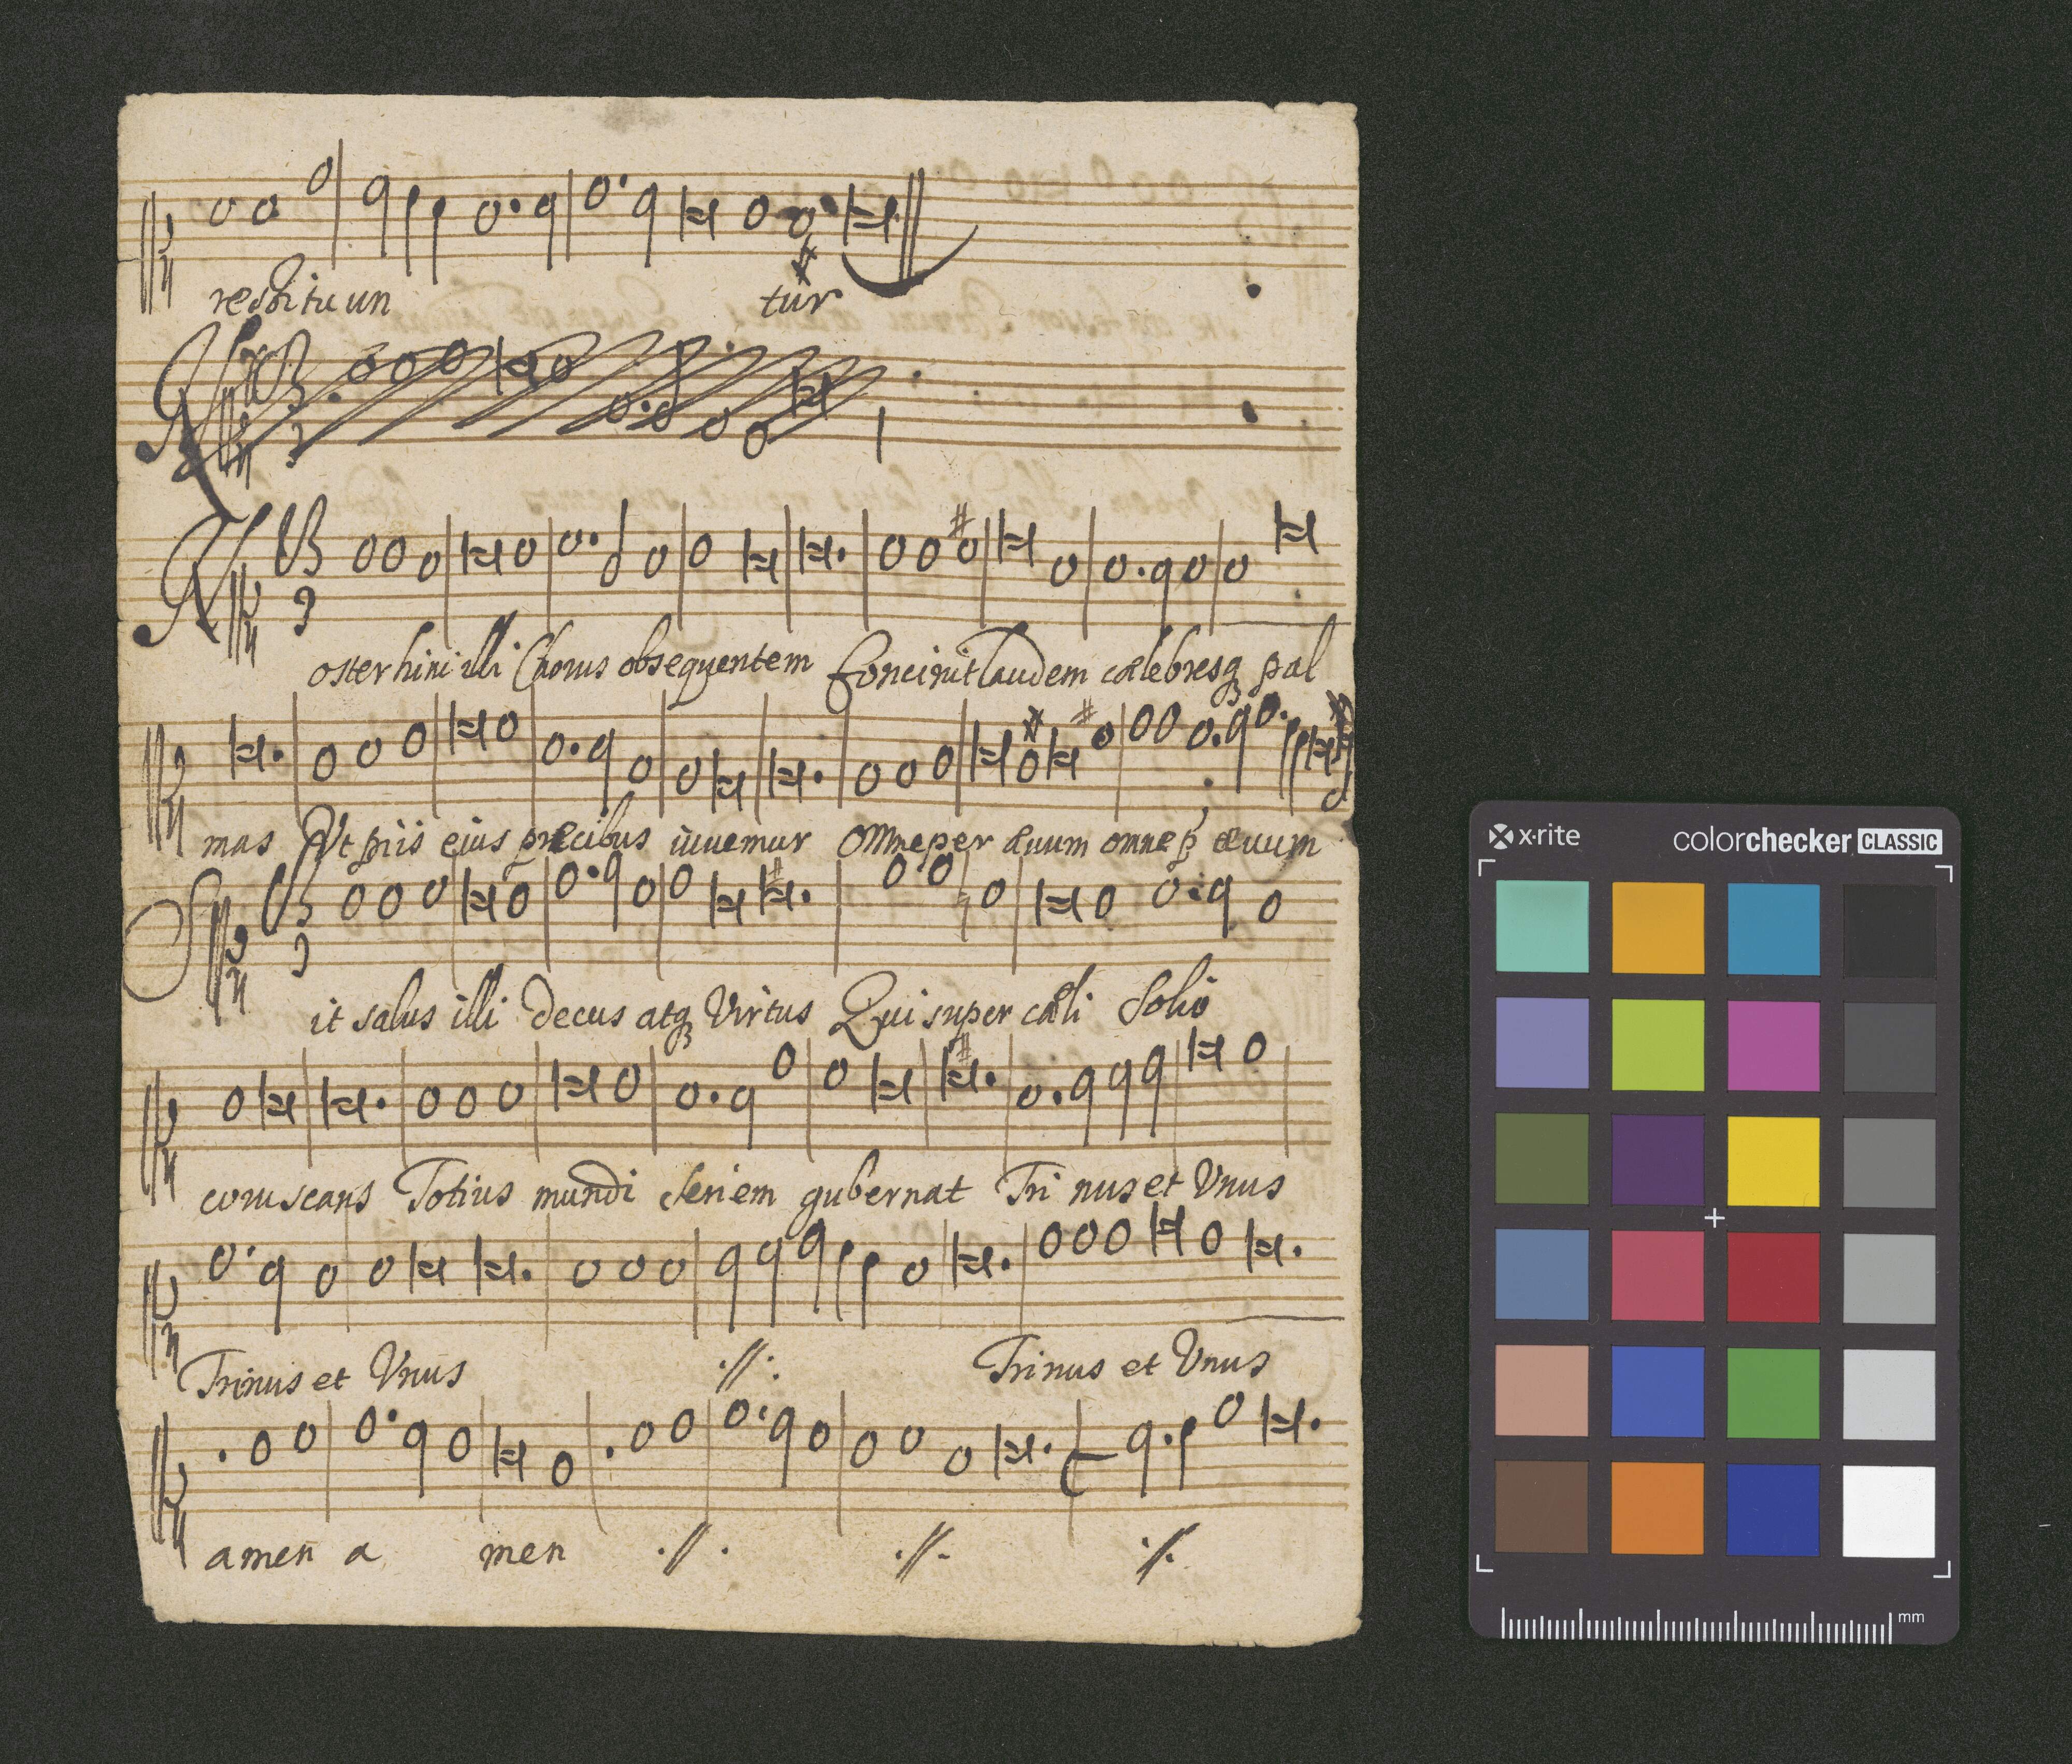 restituun tur
Noster hinc illi Chorus obsequentem Concinit laudem cælebresq pal
mas Vt piis eius præcibus iuuemur Omne per æuum omne p æuum
Sit salus illi Decus atq Virtus Qui super cæli Solio
coruscans Totius mundi Seriem gubernat Tri nus et Vnus
Trinus et Vnus ·//· Trinus et Vnus
amen a men ·//· ·//· ·//·
x·rite colorchecker CLASSIC
mm